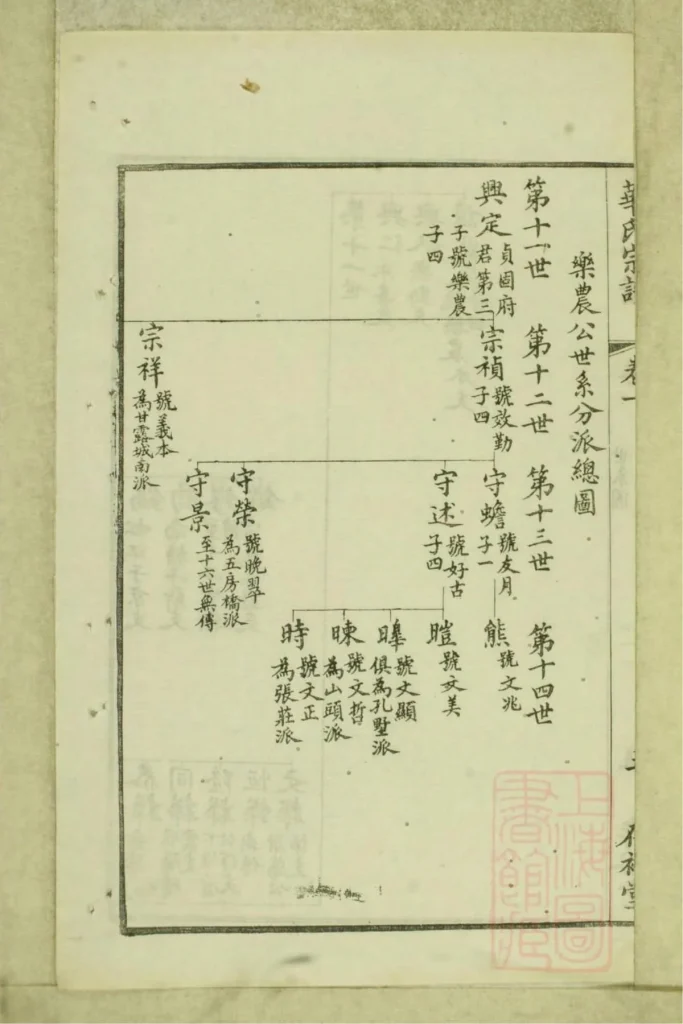 華氏宗譜
卷一
樂農公世系分派總圖
第十一世
第十二世
第十三世
第十四世
興定
貞固府
君第三
子號樂農
子四
宗禎
號效勤
子四
守蟾
號友月
子一
熊
號文兆
守述
號好古
子四
暟
號文美
皞
號文顯
俱為孔墅派
暕
號文哲
為山頭派
時
號文正
為張莊派
守榮
號晚翠
為五房橋派
守景
至十六世無傳
宗祥
號義本
為甘露城南派
上海圖
書館藏